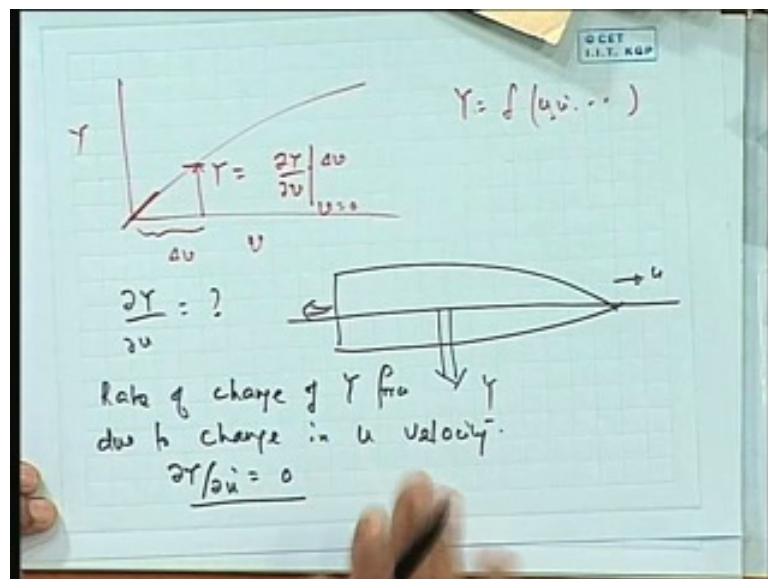 © CET
I.I.T. KGP
Y = f (u, u̇ . . . )
Y
Y = ∂Y/∂v | Δv
v=0
Δv
v
∂Y/∂u = ?
u
Y
Rate of change of Y force
due to change in u velocity.
∂Y/∂u̇ = 0